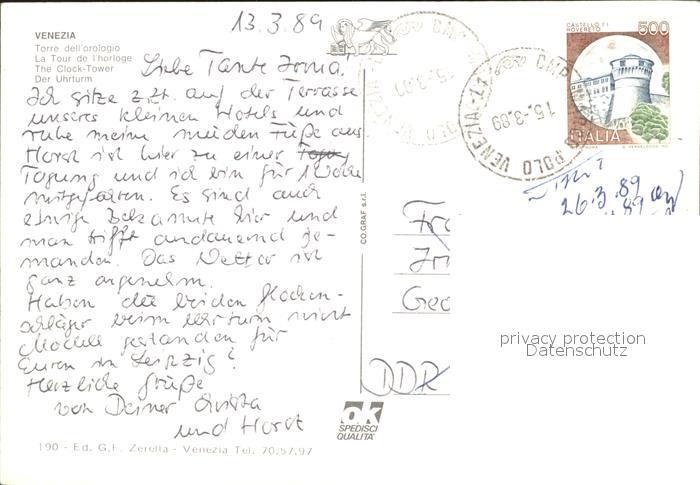 13.3.89
VENEZIA
Torre dell'orologio
La Tour de l'horloge
The Clock-Tower
Der Uhrturm
Liebe Tante Irma!
Ich sitze z.Zt. auf der Terrasse
unseres kleinen Hotels und
ruhe meine müden Füße aus
Horst ist hier zu einer
Tagung und ich bin für 1 Woche
mitgefahren. Es sind auch
einige Bekannte hier und
man trifft andauernd je-
manden. Das Wetter ist
ganz angenehm.
Haben die beiden Glocken-
schläger beim Uhrturm nicht
Modell gestanden für
Euren in Leipzig?
Herzliche Grüße
von Deiner
und Horst
190 - Ed. G.F. Zerella - Venezia Tel. 70.57.97
CO.GRAF s.r.l.
ok
SPEDISCI
QUALITA'
CASTELLO DI
ROVERETO
500
ITALIA
CMP
15.-3.89
VENEZIA
CMP
15.-3.89
POLO VENEZIA
26.3.89
Fra
Geo
DDR
privacy protection
Datenschutz